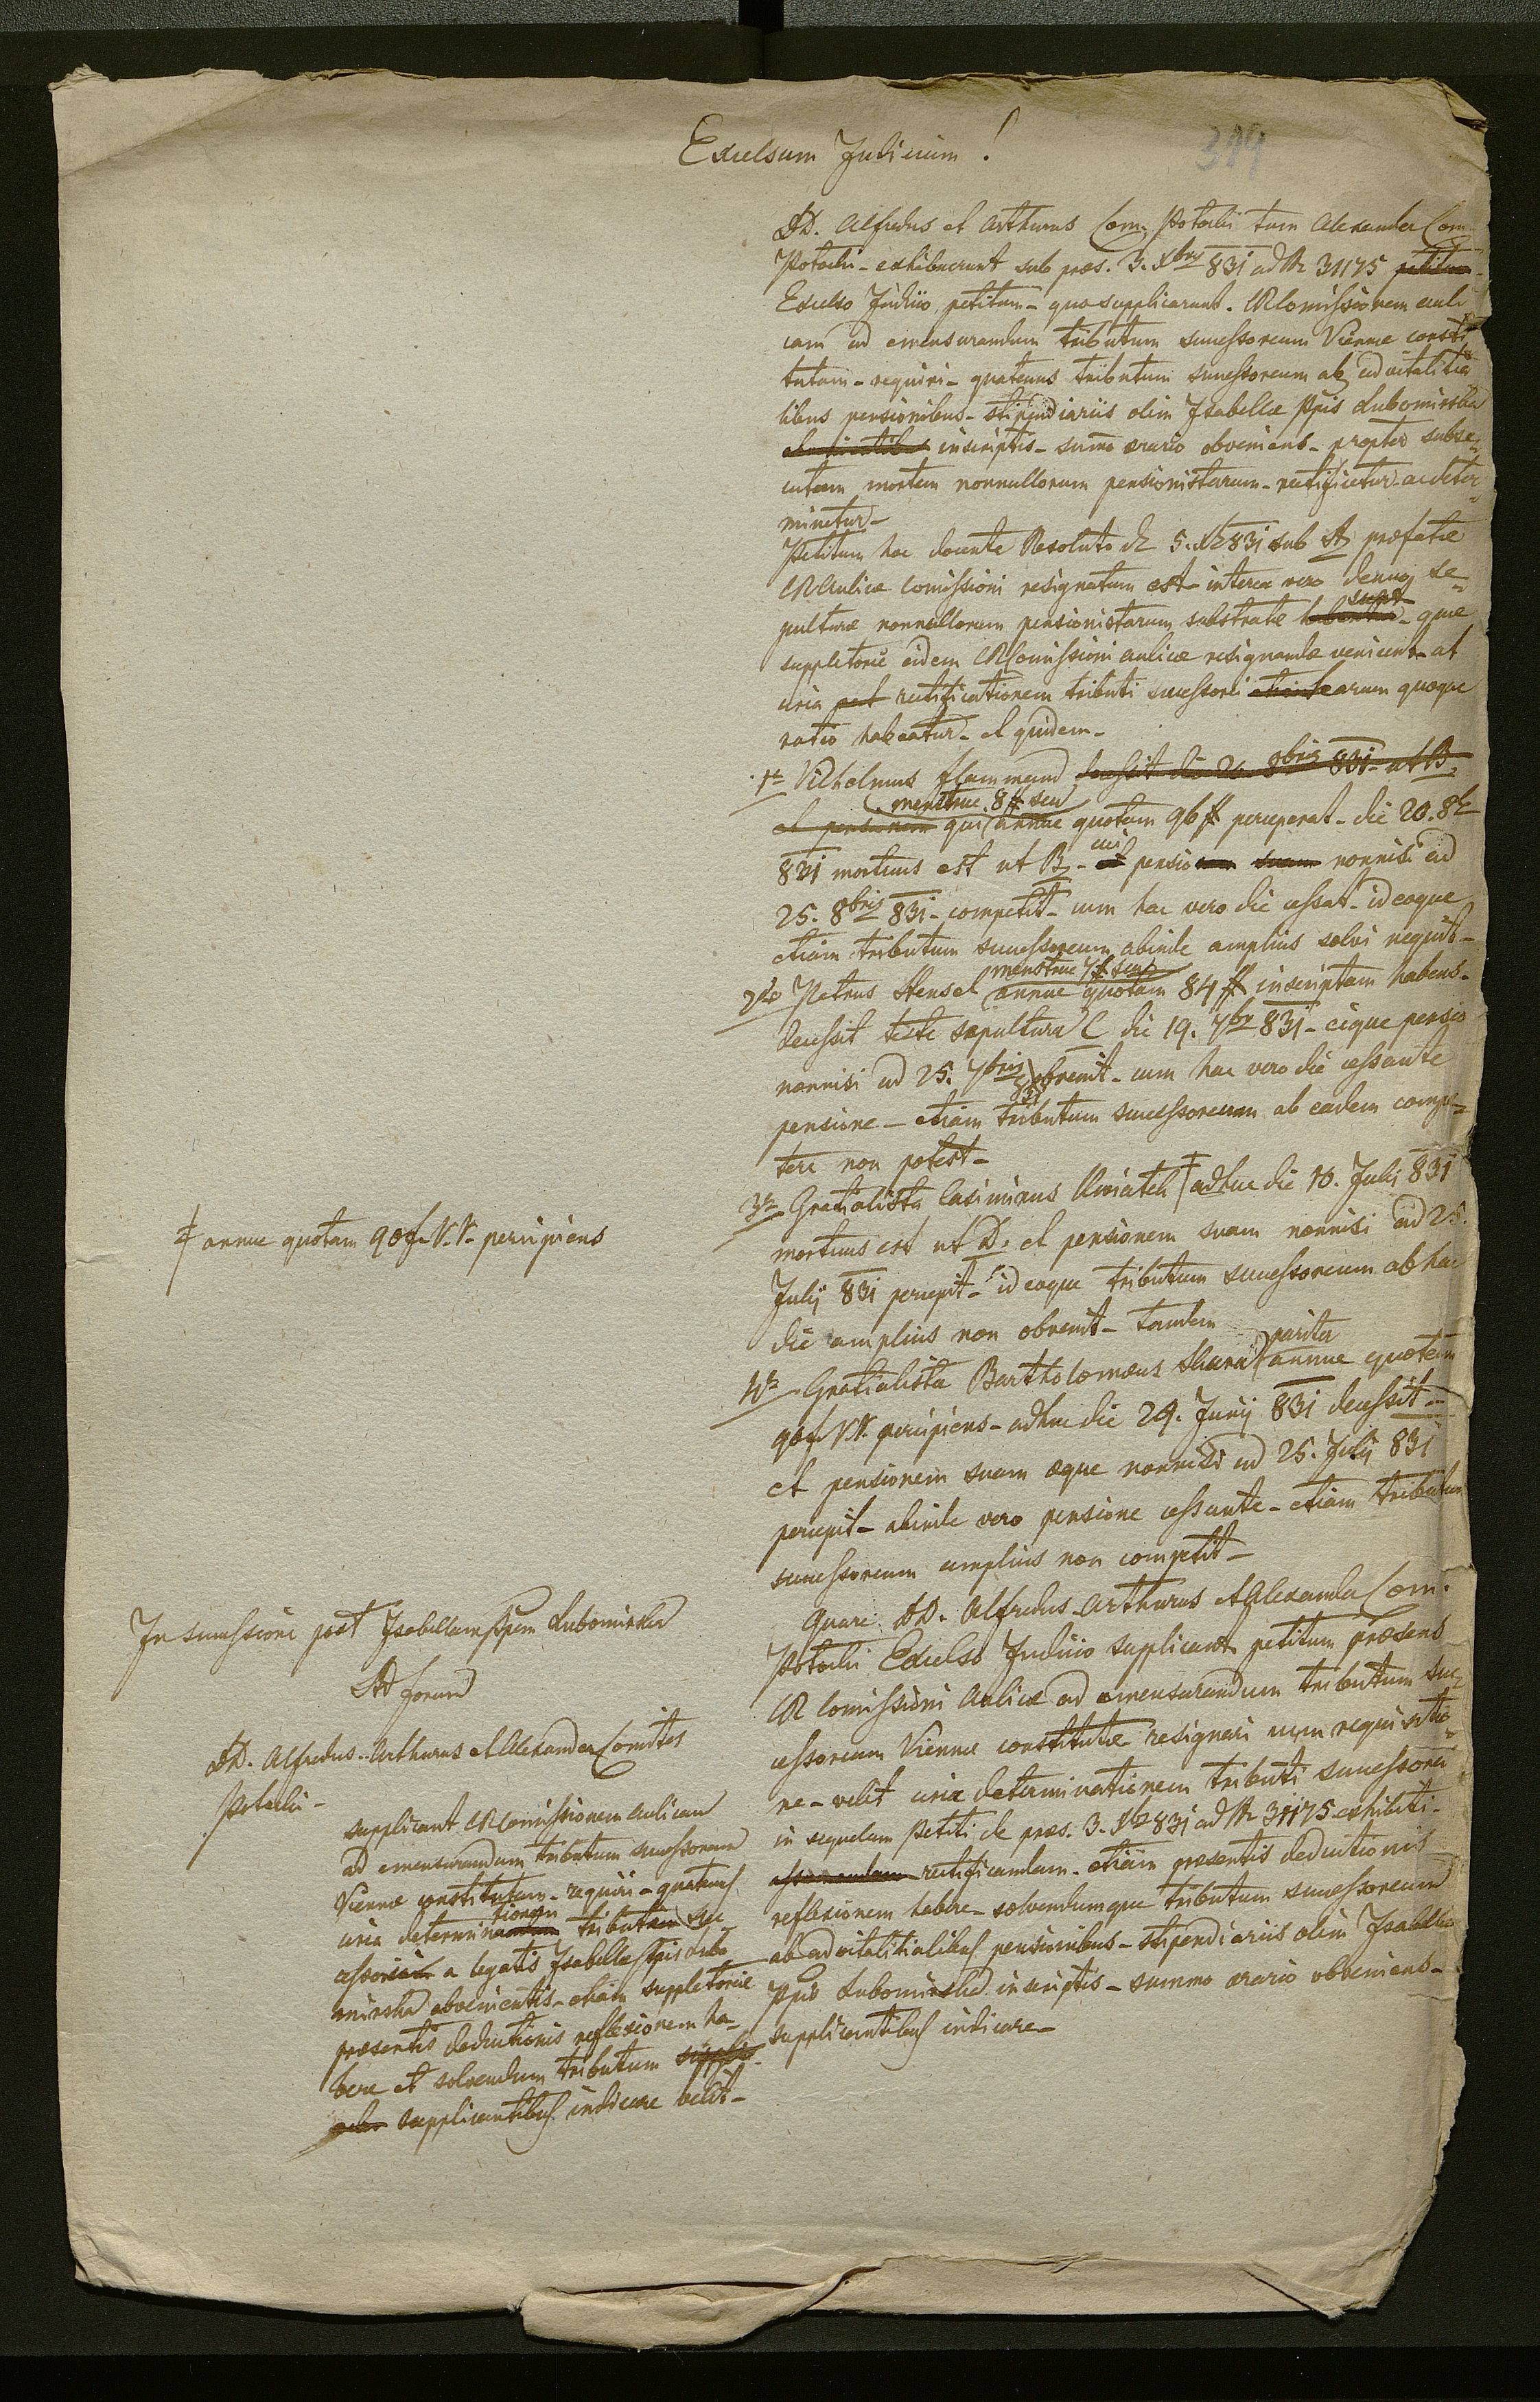 Excelsum Judicium!
319
DD. Alfredus et Arthurus Com. Potocki tum Alexander Com.
Potocki - exhibuerunt sub praes. 3. Xbris 831 ad Nr 31175 petitum
Excelso Judicio petitum - quo supplicarunt. CR Comissionem auli
cam ad emensurandum tributum successoreum Viennae consti
tutam - requiri - quatenus tributum successoreum ab advitalitia
libus pensionibus - stipendiariis olim Isabellae Ppis Lubomirska
inscriptis - sumo aerario obveniens - propter subse=
cutam mortem nonnullorum pensionistarum - rectificetur ac deter=
minetur -
Petitum hoc docente Resoluto de 5. Xb 831 sub A praefatae
CR Aulicae Comissioni resignatum est - interea vero denuo se=
sunt
pulturae nonnullorum pensionistarum substratae habentur - quae
suppletorie eidem CR Comissioni aulicae resignandae veniunt - ut
circa rectificationem tributi successorei earum quoque
ratio habeatur - et quidem -
1o Vilhelmus Flammand decessit die 20. 8bris 831 - ut B
menstrue 8 f seu
et pensionem qui annue quotam 96 f perceperat - die 20. 8b
831 mortuus est ut B - cui pensio suam nonnisi ad
25. 8bris 831 - competit - cum hac vero die cessat - ideoque
etiam tributum successoreum abinde amplius solvi nequit -
menstrue 7 f seu
2do Petrus Hensel annue quotam 84 f inscriptam habens -
decessit teste sepultura C die 19. 7br 831 - eique pensio
nonnisi ad 25. 7bris 831 obvenit - cum hac vero die cessante
pensione - etiam tributum successoreum ab eadem compe=
tere non potest -
3o Gratialista Casimirus Kwiatek ‡ adhuc die 10. Julij 831
‡ annue quotam 90 f V.V. percipiens
mortuus est ut D. et pensionem suam nonnisi ad 25.
Julij 831 percepit - ideoque tributum successoreum ab hac
die amplius non obvenit - tandem
pariter
4o Gratialista Bartholomaeus Skara annue quotam
90 f V.V. percipiens - adhuc die 24. Junij 831 decessit -
et pensionem suam aeque nonnisi ad 25. Julij 831
percepit - abinde vero pensione cessante - etiam tributum
successoreum amplius non competit -
Quare DD. Alfredus Arthurus et Alexander Com.
Potocki Excelso Judicio supplicant petitum praesens
CR Comissioni Aulicae ad emensurandum tributum suc=
cessoreum Viennae constitutae resignari cum requisitio=
ne - velit circa determinationem tributi successorei
in sequelam petiti de praes. 3. Xb 831 ad Nr 31175 exhibiti -
rectificandam - etiam praesentis deductionis
reflexionem habere - solvendumque tributum successoreum
ab advitalitialibus pensionibus - stipendiariis olim Isabellae
Ppis Lubomirska inscriptis - summo aerario obveniens -
supplicantibus indicare -
In successione post Isabellam Ppem Lubomirska
Ad forum
DD. Alfredus - Arthurus et Alexander Comites
Potocki -
supplicant CR Comissionem aulicam
ad emensurandum tributum successoreum
Viennae constitutam - requiri - quatenus
tionem
circa determina tributum suc
cessorei a legatis Isabellae Ppis Lubo
mirska obvenientis - etiam suppletoriae
praesentis deductionis reflexionem ha=
bere et solvendum tributum
supplicantibus indicare velit -